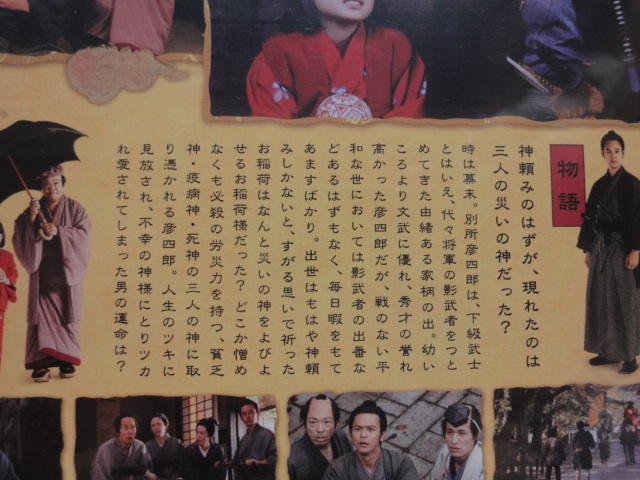 物語
神頼みのはずが、現れたのは
三人の災いの神だった?
時は幕末。別所彦四郎は、下級武士
とはいえ、代々将軍の影武者をつと
めてきた由緒ある家柄の出。幼い
ころより文武に優れ、秀才の誉れ
高かった彦四郎だが、戦のない平
和な世においては影武者の出番な
どあるはずもなく、毎日暇をもて
あますばかり。出世はもはや神頼
みしかないと、すがる思いで祈った
お稲荷はなんと災いの神をよびよ
せるお稲荷様だった? どこか憎め
なくも必殺の労災力を持つ、貧乏
神・疫病神・死神の三人の神に取
り憑かれる彦四郎。人生のツキに
見放され、不幸の神様にとりツカ
れ愛されてしまった男の運命は?